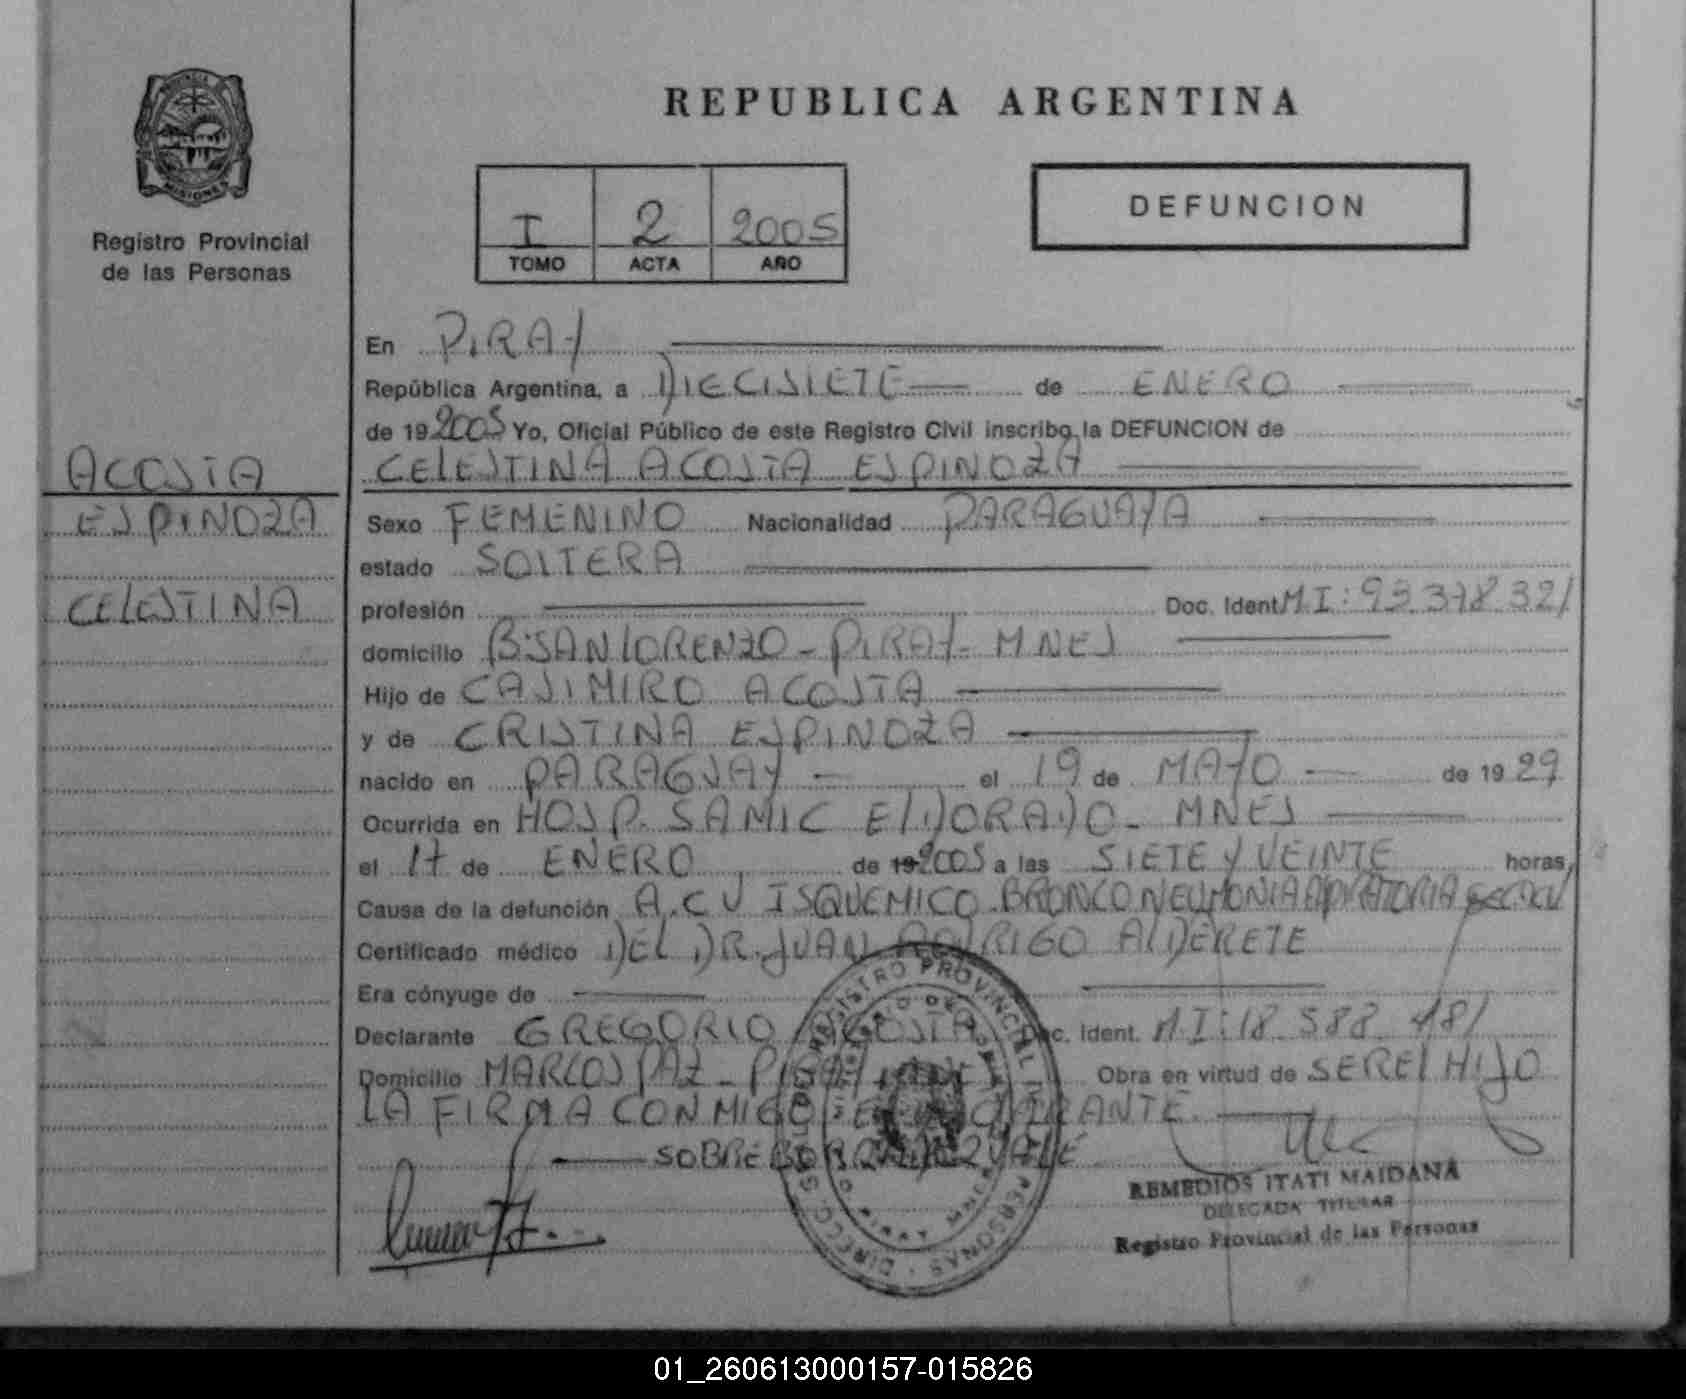 PROVINCIA
MISIONES
Registro Provincial
de las Personas
ACOSTA
ESPINOZA
CELESTINA
REPUBLICA ARGENTINA
I 2 2005
TOMO ACTA AÑO
DEFUNCION
En PIRAY
República Argentina, a DIECISIETE de ENERO
de 19 2005 Yo, Oficial Público de este Registro Civil inscribo la DEFUNCION de
CELESTINA ACOSTA ESPINOZA
Sexo FEMENINO Nacionalidad PARAGUAYA
estado SOLTERA
profesión Doc. Ident. M.I: 93.378.321
domicilio Bº SAN LORENZO - PIRAY - MNES
Hijo de CASIMIRO ACOSTA
y de CRISTINA ESPINOZA
nacido en PARAGUAY el 19 de MAYO de 19 29
Ocurrida en HOSP. SAMIC ELDORADO - MNES
el 17 de ENERO de 19 2005 a las SIETE Y VEINTE horas,
Causa de la defunción A.C V ISQUEMICO. BRONCONEUMONIA
Certificado médico DEL DR. JUAN RODRIGO ALDERETE
Era cónyuge de
Declarante GREGORIO ACOSTA Doc. Ident. M.I: 18.588.481
Domicilio MARCOS PAZ - PIRAY Obra en virtud de SER EL HIJO
LA FIRMA CONMIGO EL DECLARANTE.
SOBREBORRADO VALE
REGISTRO PROVINCIAL DE LAS PERSONAS
REMEDIOS ITATI MAIDANA
DELEGADA TITULAR
Registro Provincial de las Personas
01_260613000157-015826